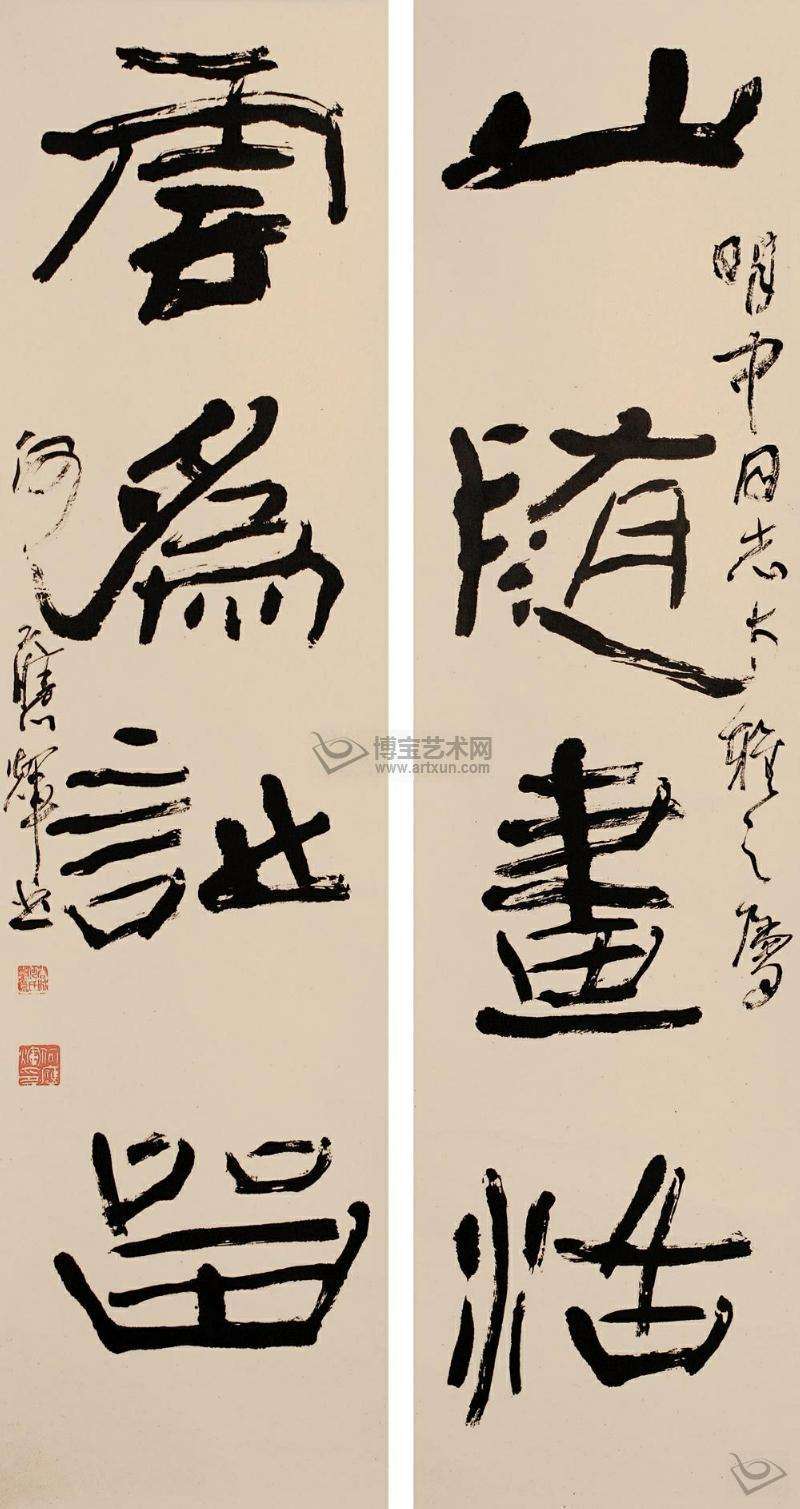 山随畫活
明中同志大雅之属
雲爲詩留
何應輝书
博宝艺术网
www.artxun.com